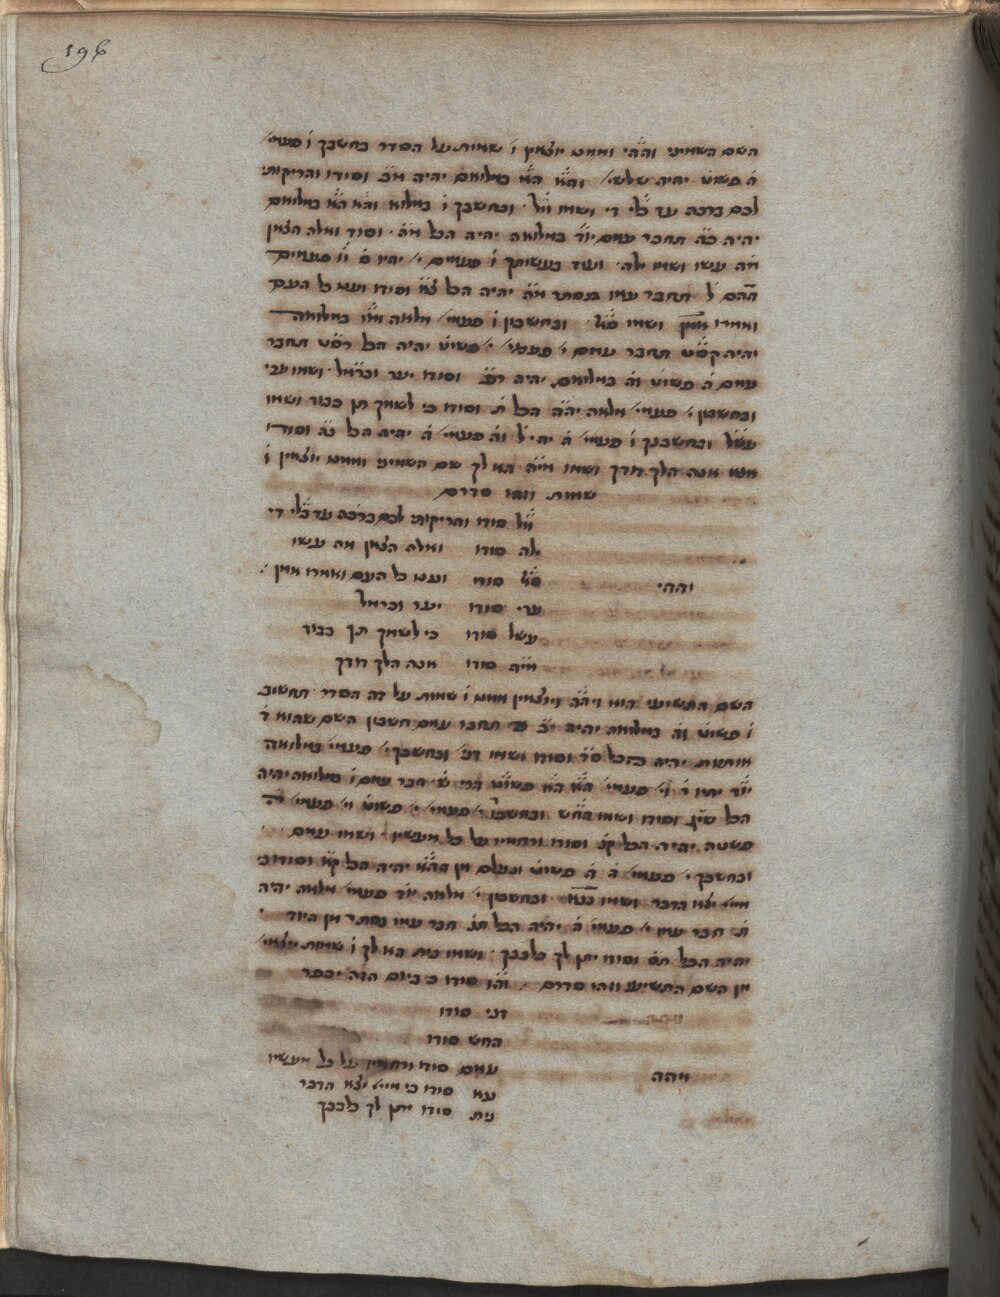 196
השם השמיני והה״י וממנו יוצאין ו׳ שמות על הסדר כחשבך ו׳ פעמי׳
ה׳ פשוט יהיה שלשי׳ והא הא במילואם יהיה מ״ב וסודו והריקותי
לכם ברכה עד בלי די ושמו וכחשבך ו׳ במלוא והא הא במלואם
יהיה כ״ה תחבר עמם יו״ד במלואה יהיה הכל מ״ה וסוד ואלה הצאן
מה עשו ושמו ילה׳ ועוד בעשותך ו׳ פעמים י׳ יהיו ס׳ וו פעמים
ההם ל׳ תחבר עמו בנסתר מ״ה יהיה הכל וסודו וענו כל העם
ואמרו אמן ושמו וכחשבון ו׳ פעמי׳ מלאה במלואה
יהיה תחבר עמם י׳ פעמי׳ י׳ פשוט יהיה הכל תחבר
עמם ה׳ פשוט וה׳ במלואם יהיה וסודו יער וכרמל ושמו ערי
ובחשבון י׳ פעמי׳ מלאה יהיה הכל ת׳ וסודו כי לשמך תן כבוד ושמו
עשל ובחשבנך ו׳ פעמי׳ ה׳ יהי׳ ל׳ וה׳ פעמי׳ ה׳ יהיה הכל נ״ה וסודו
אנה הלך דודך ושמו מיה הא לך שם השמיני וממנו יוצאין ו׳
שמות וזהו סדרם
סודו והריקותי לכם ברכה עד בלי די
ילה סודו ואלה הצאן מה עשו
והה״י
סאל סודו וענו כל העם ואמרו אמן
ערי סודו יער וכרמל
עשל סודו כי לשמך תן כבוד
מיה סודו אנה הלך דודך
השם התשיעי הוא ויהה ויוצאין ממנו ו׳ שמות על זה הסדר תחשוב
ו׳ פשוט וה׳ במלואה יהיה י״ב תחבר עמם חשבון השם שהוא ד׳
אותיות יהיה הכל ס״ד וסודו ושמו דני׳ ובחשבך י׳ פעמי׳ במלואה
יו״ד יהיו ר׳ וי׳ פעמי׳ הא הא פשוט הרי ש׳ חבר עמם ו׳ מילואה יהיה
הכל שי״ג וסודו ושמו החש ובחשבו י׳ פעמי׳ י׳ פשוט וי׳ פעמי׳
פשטה יהיה הכל ק״נ וסודו ורחמיו על כל מעשיו ושמו עמם
ובחשבך י׳ פעמי׳ ה׳ ה׳ פשוט ונעלם מן ההא יהיה הכל קא וסודו כי
מיי׳ יצא הדבר ושמו ננא ובחשבון י׳ מלאה יוד פעמי׳ מלאה יהיה
ת׳ חבר עמו י׳ פעמי׳ ה׳ יהיה הכל תנ׳ חבר עמו נסתר מן היוד
יהיה הכל תס׳ וסודו יתן לך כלבבך ושמו נית הא לך ו׳ שמות יוצאי׳
מן השם התשיעי וזהו סדרם והו סודו כי ביום הזה יכפר
דני סודו
החש סודו
ויהה
עמם סודו ורחמיו על כל מעשיו
ננא סודו כי מיי׳ יצא הדבר
נית סודו יתן לך כלבבך